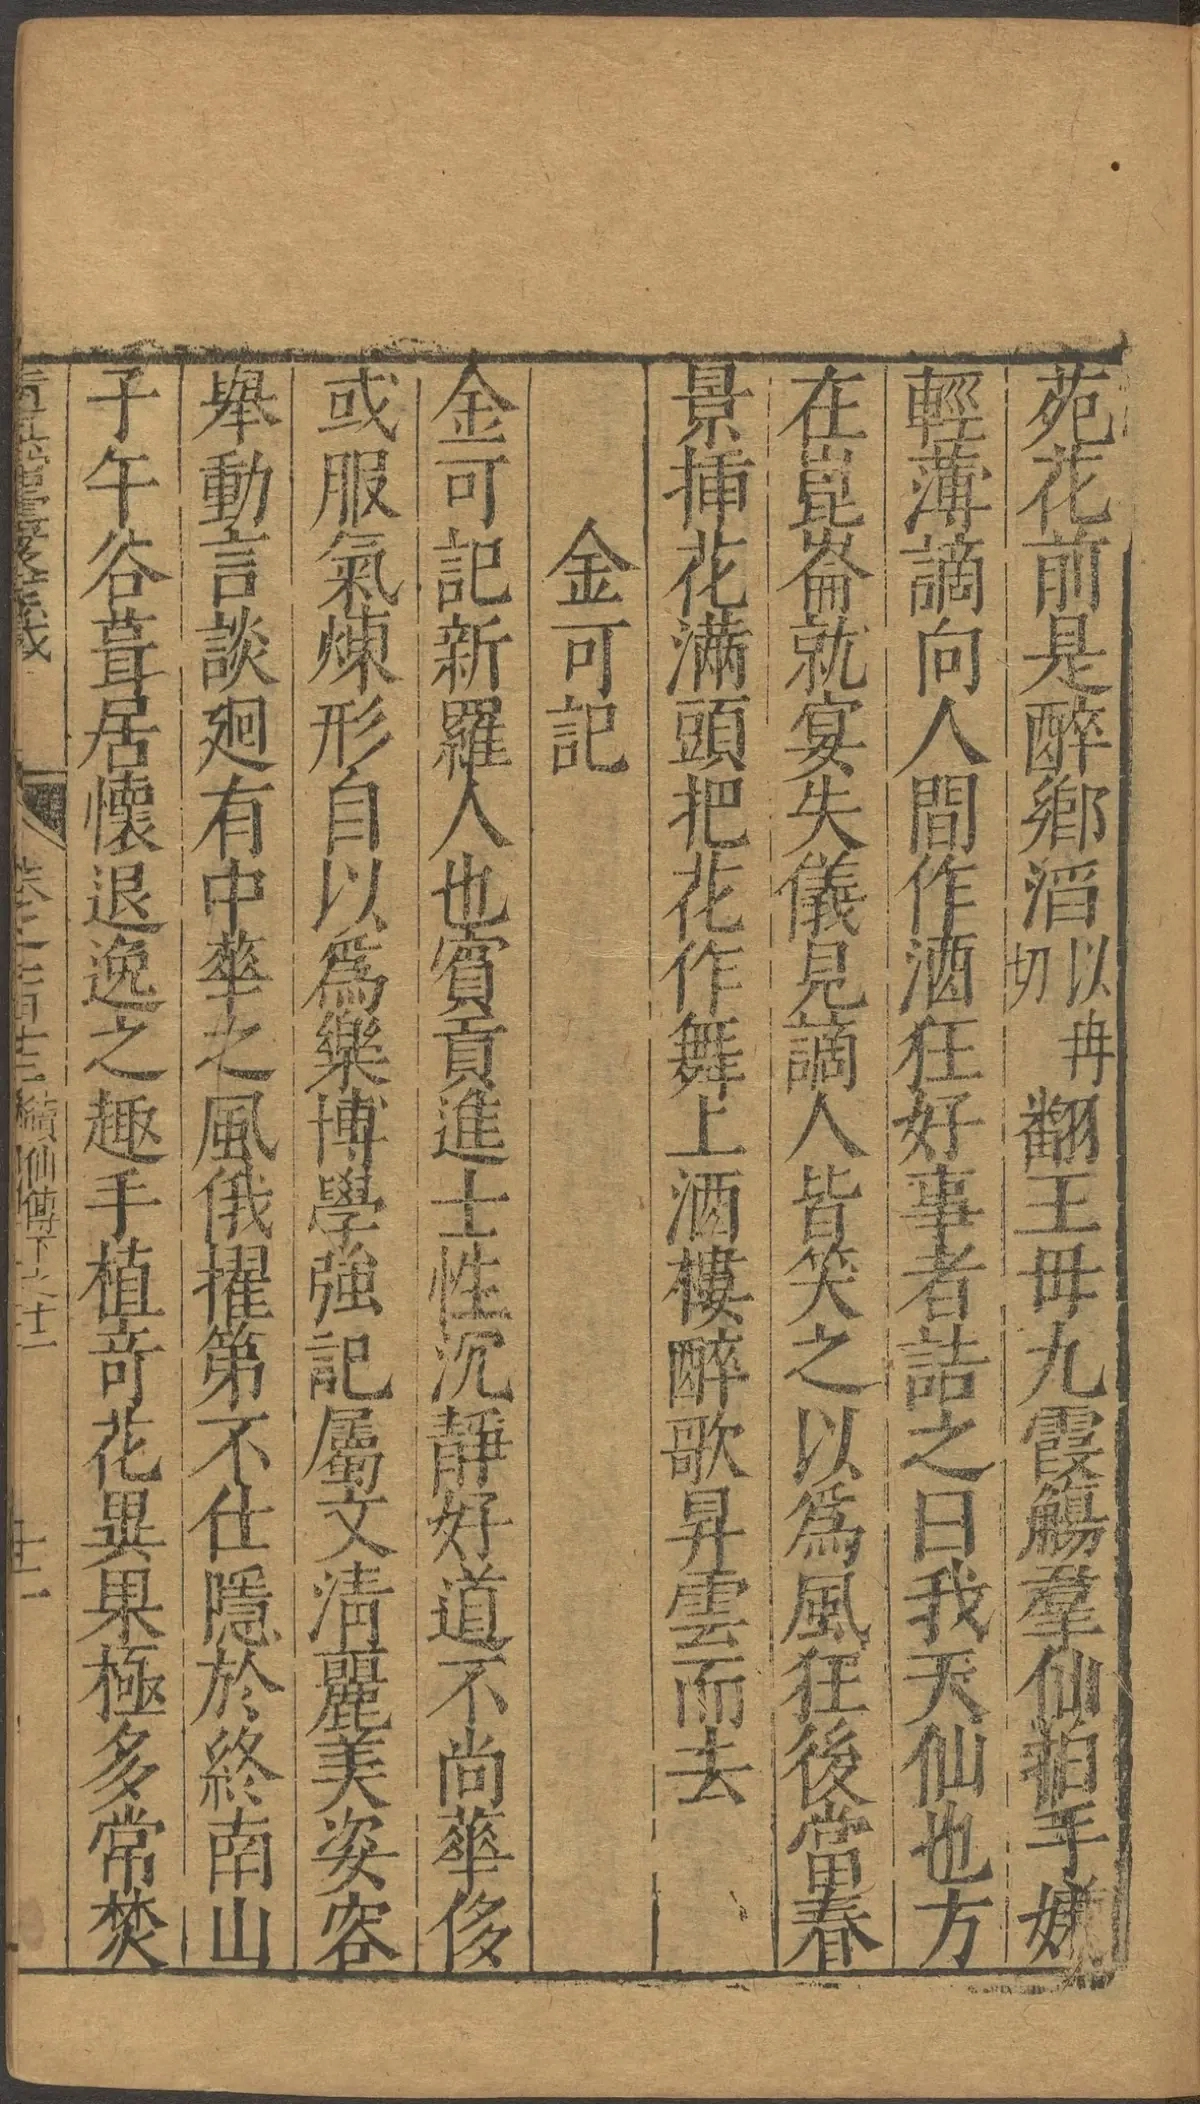 苑花前是醉鄉滔以冉切翻王毋九霞觴羣仙拍手嫌
輕薄謫向人間作酒狂好事者詰之曰我天仙也方
在崑崙就宴失儀見謫人皆笑之以爲風狂後當春
景揷花滿頭把花作舞上酒樓醉歌昇雲而去
金可記
金可記新羅人也賓貢進士性沉靜好道不尚華侈
或服氣煉形自以爲樂博學強記屬文清麗美姿容
舉動言談迥有中華之風俄擢第不仕隱於終南山
子午谷葺居懷退逸之趣手植奇花異果極多常焚
續仙傳下之十二
十二